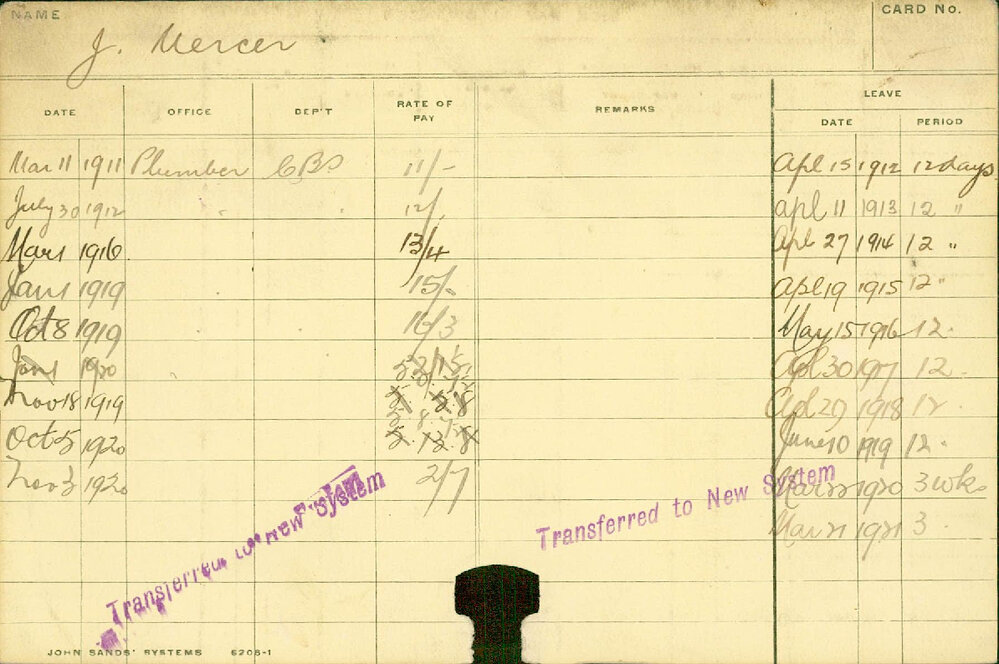 NAME
CARD No.
J. Mercer
LEAVE
DATE OFFICE DEP'T RATE OF PAY REMARKS DATE PERIOD
Mar 11 1911 Plumber CBS 11/- Apl 15 1912 12 days
July 30 1912 12/. Apl 11 1913 12 "
Mar 1 1916 13/4 Apl 27 1914 12 "
Jan 1 1919 15/. Apl 19 1915 12 "
Oct 8 1919 16/3 May 15 1916 12.
Jan 1 1920 Apl 30 1917 12.
Nov 18 1919 Apl 29 1918 12.
Oct 5 1920 June 10 1919 12.
Nov 3 1920 2/7 Mar 1920 3 wks
Mar 21 1921 3.
Transferred to New System
Transferred to New System
JOHN SANDS' SYSTEMS 6208-1